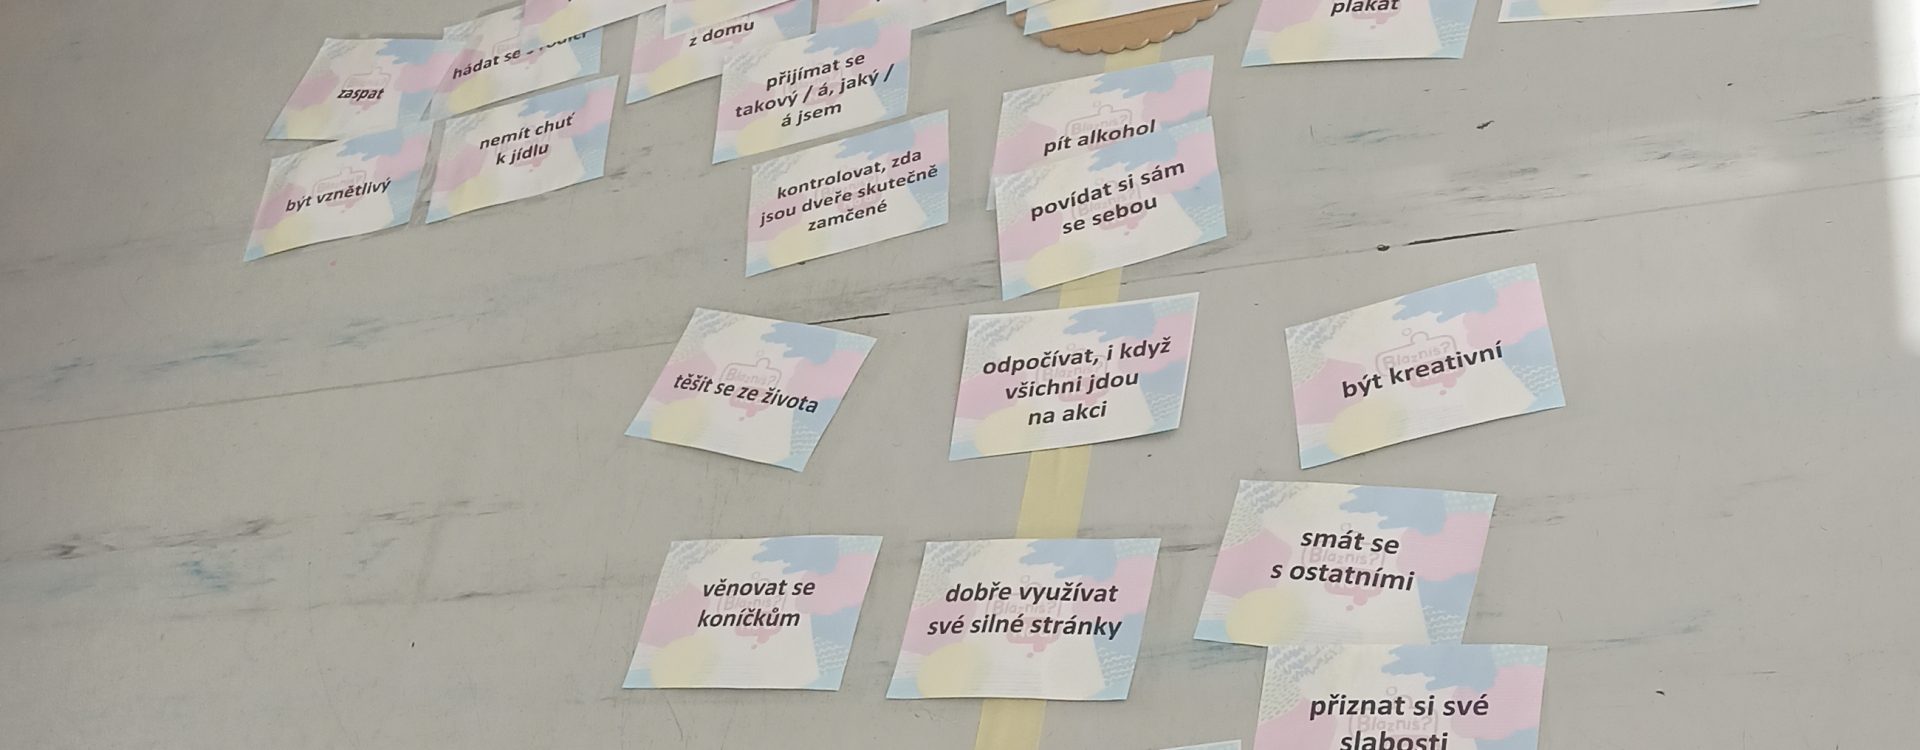 plakat
z domu
hádat se
zaspat
přijímat se
takový / á, jaký /
á jsem
nemít chuť
k jídlu
pít alkohol
být vznětlivý
kontrolovat, zda
jsou dveře skutečně
zamčené
povídat si sám
se sebou
těšit se ze života
odpočívat, i když
všichni jdou
na akci
být kreativní
smát se
s ostatními
věnovat se
koníčkům
dobře využívat
své silné stránky
přiznat si své
slabosti